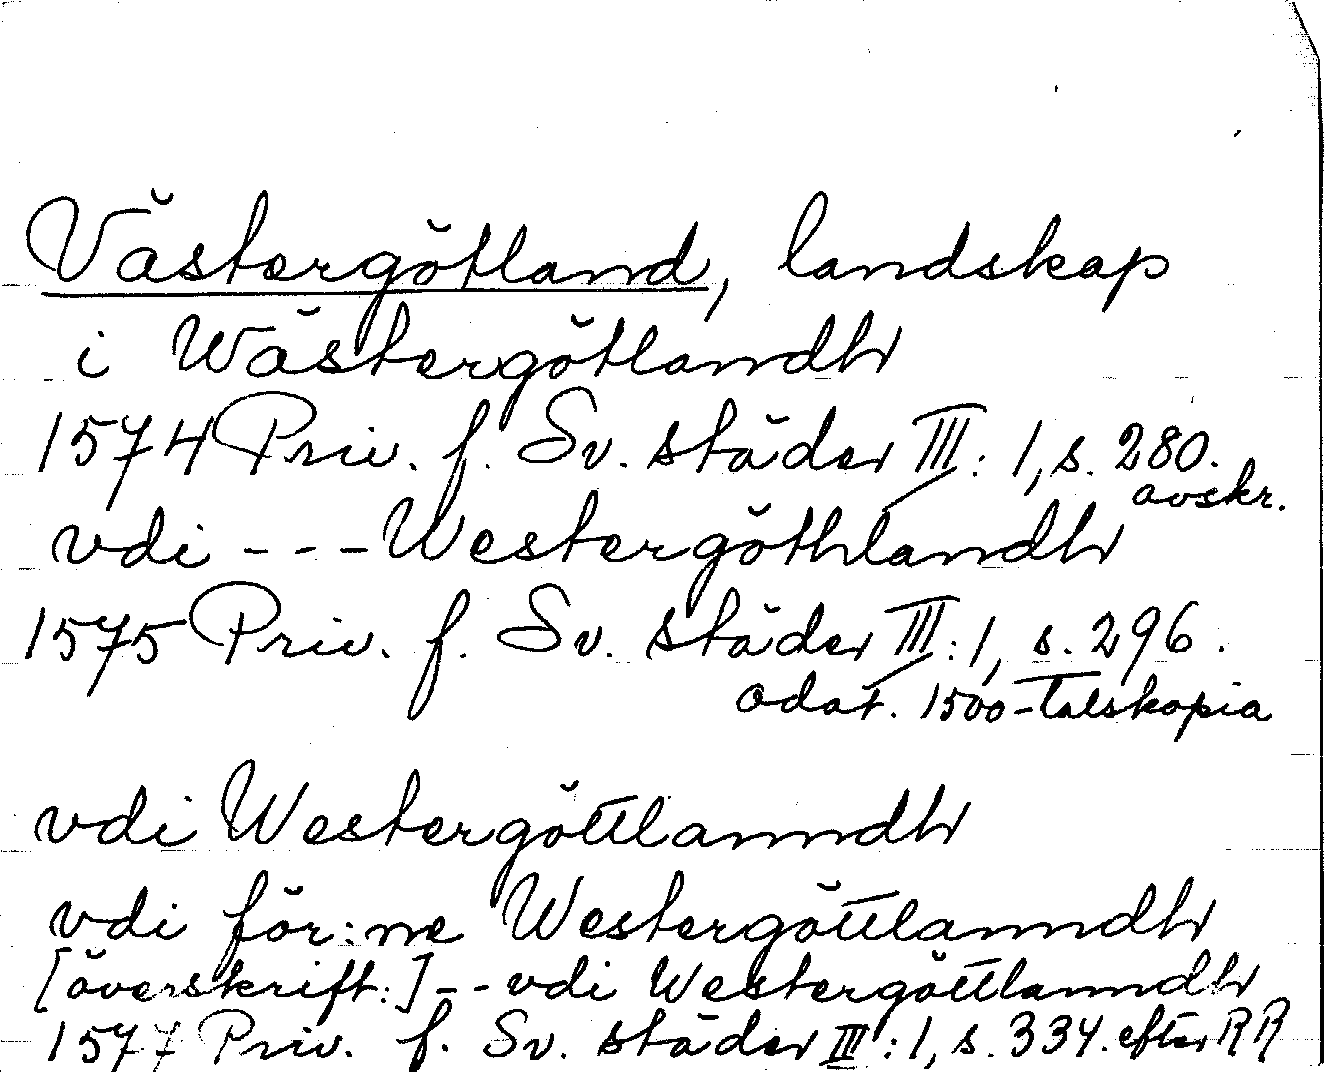 Västergötland, landskap
i Wästergötlandh
1574 Priv. f. Sv. städer III: 1, s. 280.
avskr.
vdi - - - Westergöthlandh
1575 Priv. f. Sv. städer III: 1, s. 296.
odat. 1500-talskopia
vdi Westergöttlanndh
vdi för:ne Westergöttlanndh
[överskrift:] - - vdi Westergöttlanndh
1577 Priv. f. Sv. städer III: 1, s. 334. efter RR